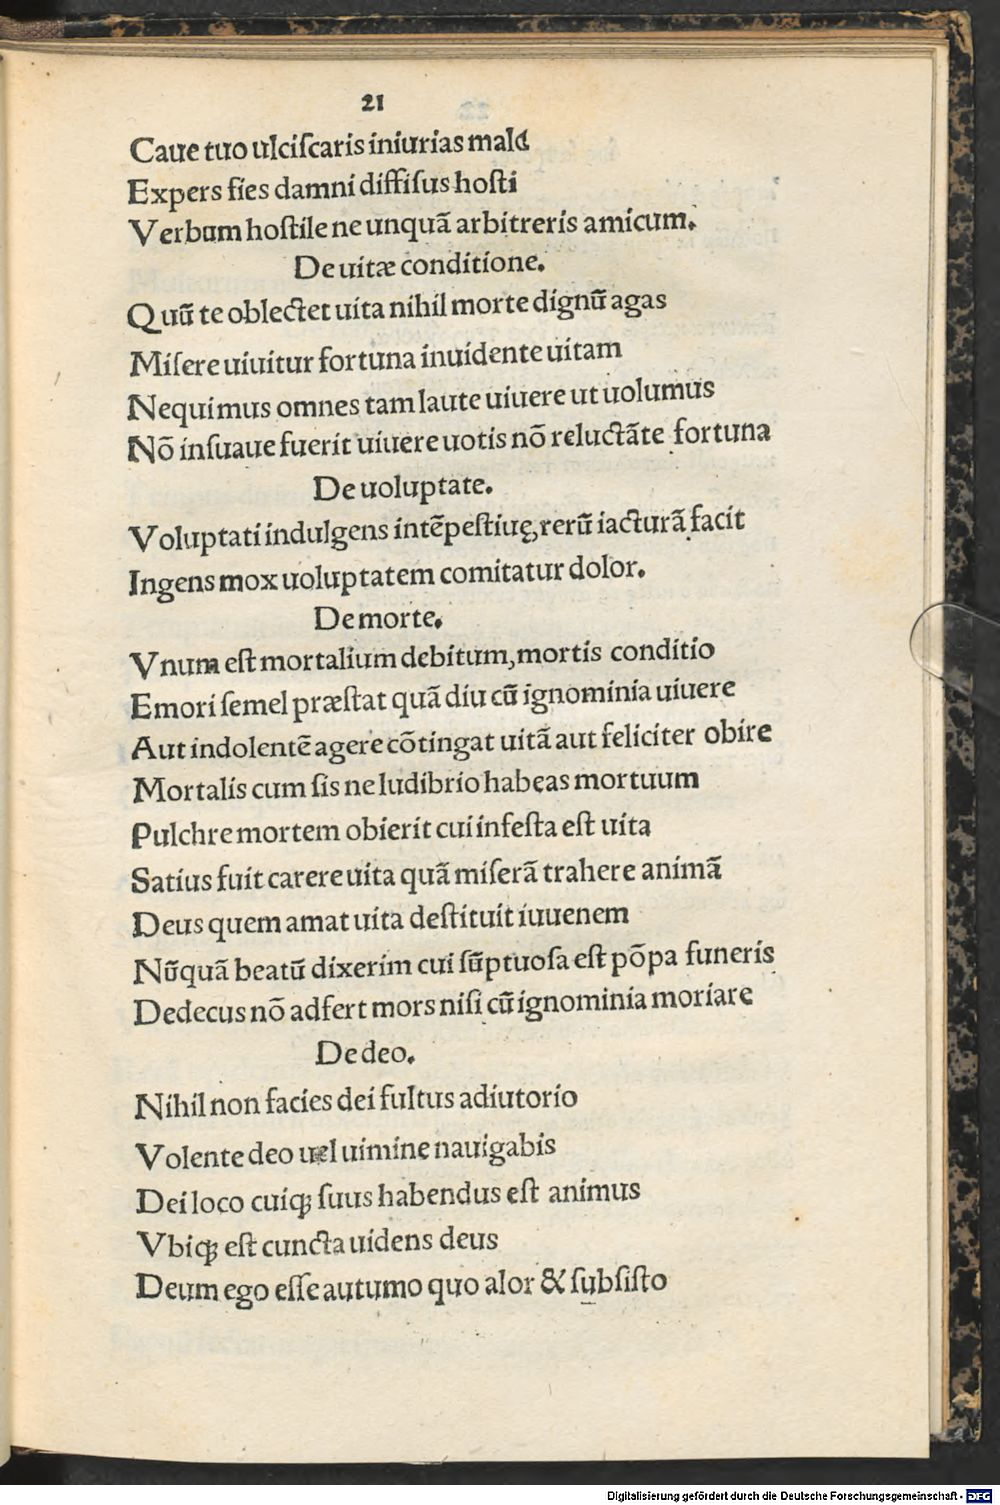 21
Caue tuo ulciſcaris iniurias malo
Expers fies damni diffiſus hoſti
Verbum hoſtile ne unquã arbitreris amicum.
De uitæ conditione.
Quũ te oblectet uita nihil morte dignũ agas
Miſere uiuitur fortuna inuidente uitam
Nequimus omnes tam laute uiuere ut uolumus
Nõ inſuaue fuerit uiuere uotis nõ reluctãte fortuna
De uoluptate.
Voluptati indulgens intẽpeſtiuę, rerũ iacturã facit
Ingens mox uoluptatem comitatur dolor.
De morte.
Vnum eſt mortalium debitum, mortis conditio
Emori ſemel præſtat quã diu cũ ignominia uiuere
Aut indolentẽ agere cõtingat uitã aut feliciter obire
Mortalis cum ſis ne ludibrio habeas mortuum
Pulchre mortem obierit cui infeſta eſt uita
Satius fuit carere uita quã miſerã trahere animã
Deus quem amat uita deſtituit iuuenem
Nũquã beatũ dixerim cui ſũptuoſa eſt põpa funeris
Dedecus nõ adfert mors niſi cũ ignominia moriare
De deo.
Nihil non facies dei fultus adiutorio
Volente deo uel uimine nauigabis
Dei loco cuiqꝫ ſuus habendus eſt animus
Vbiqꝫ eſt cuncta uidens deus
Deum ego eſſe autumo quo alor & ſubſiſto
Digitalisierung gefördert durch die Deutsche Forschungsgemeinschaft - DFG